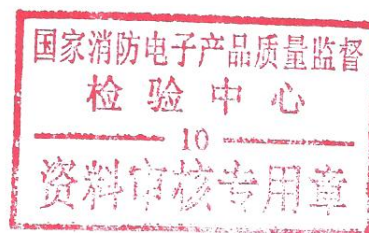 国家消防电子产品质量监督
检验中心
10
资料审核专用章